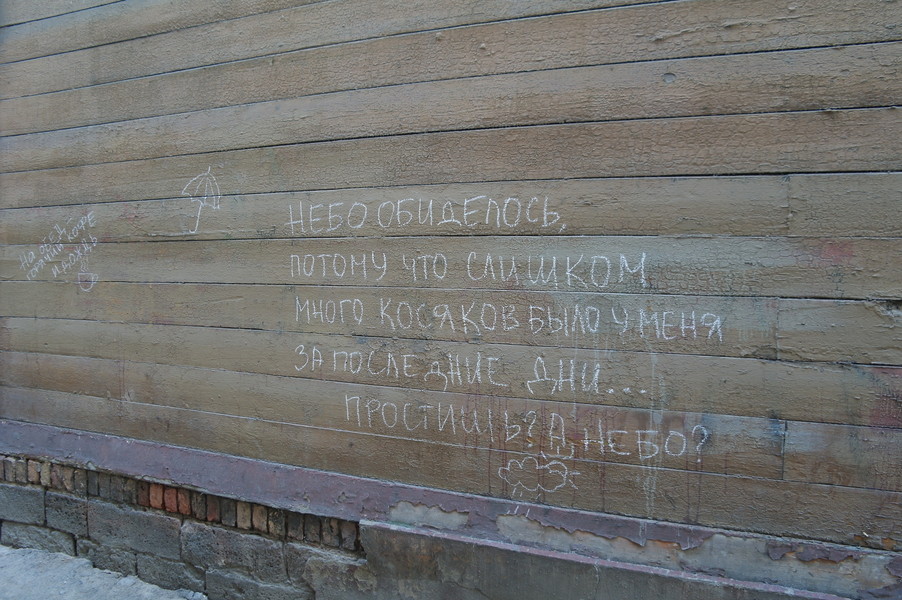 НЕБО ОБИДЕЛОСЬ,
ПОТОМУ ЧТО СЛИШКОМ
МНОГО КОСЯКОВ БЫЛО У МЕНЯ
ЗА ПОСЛЕДНИЕ ДНИ...
ПРОСТИШЬ? А, НЕБО?
ГОРЯЧИЙ КОФЕ
И ДОЖДЬ